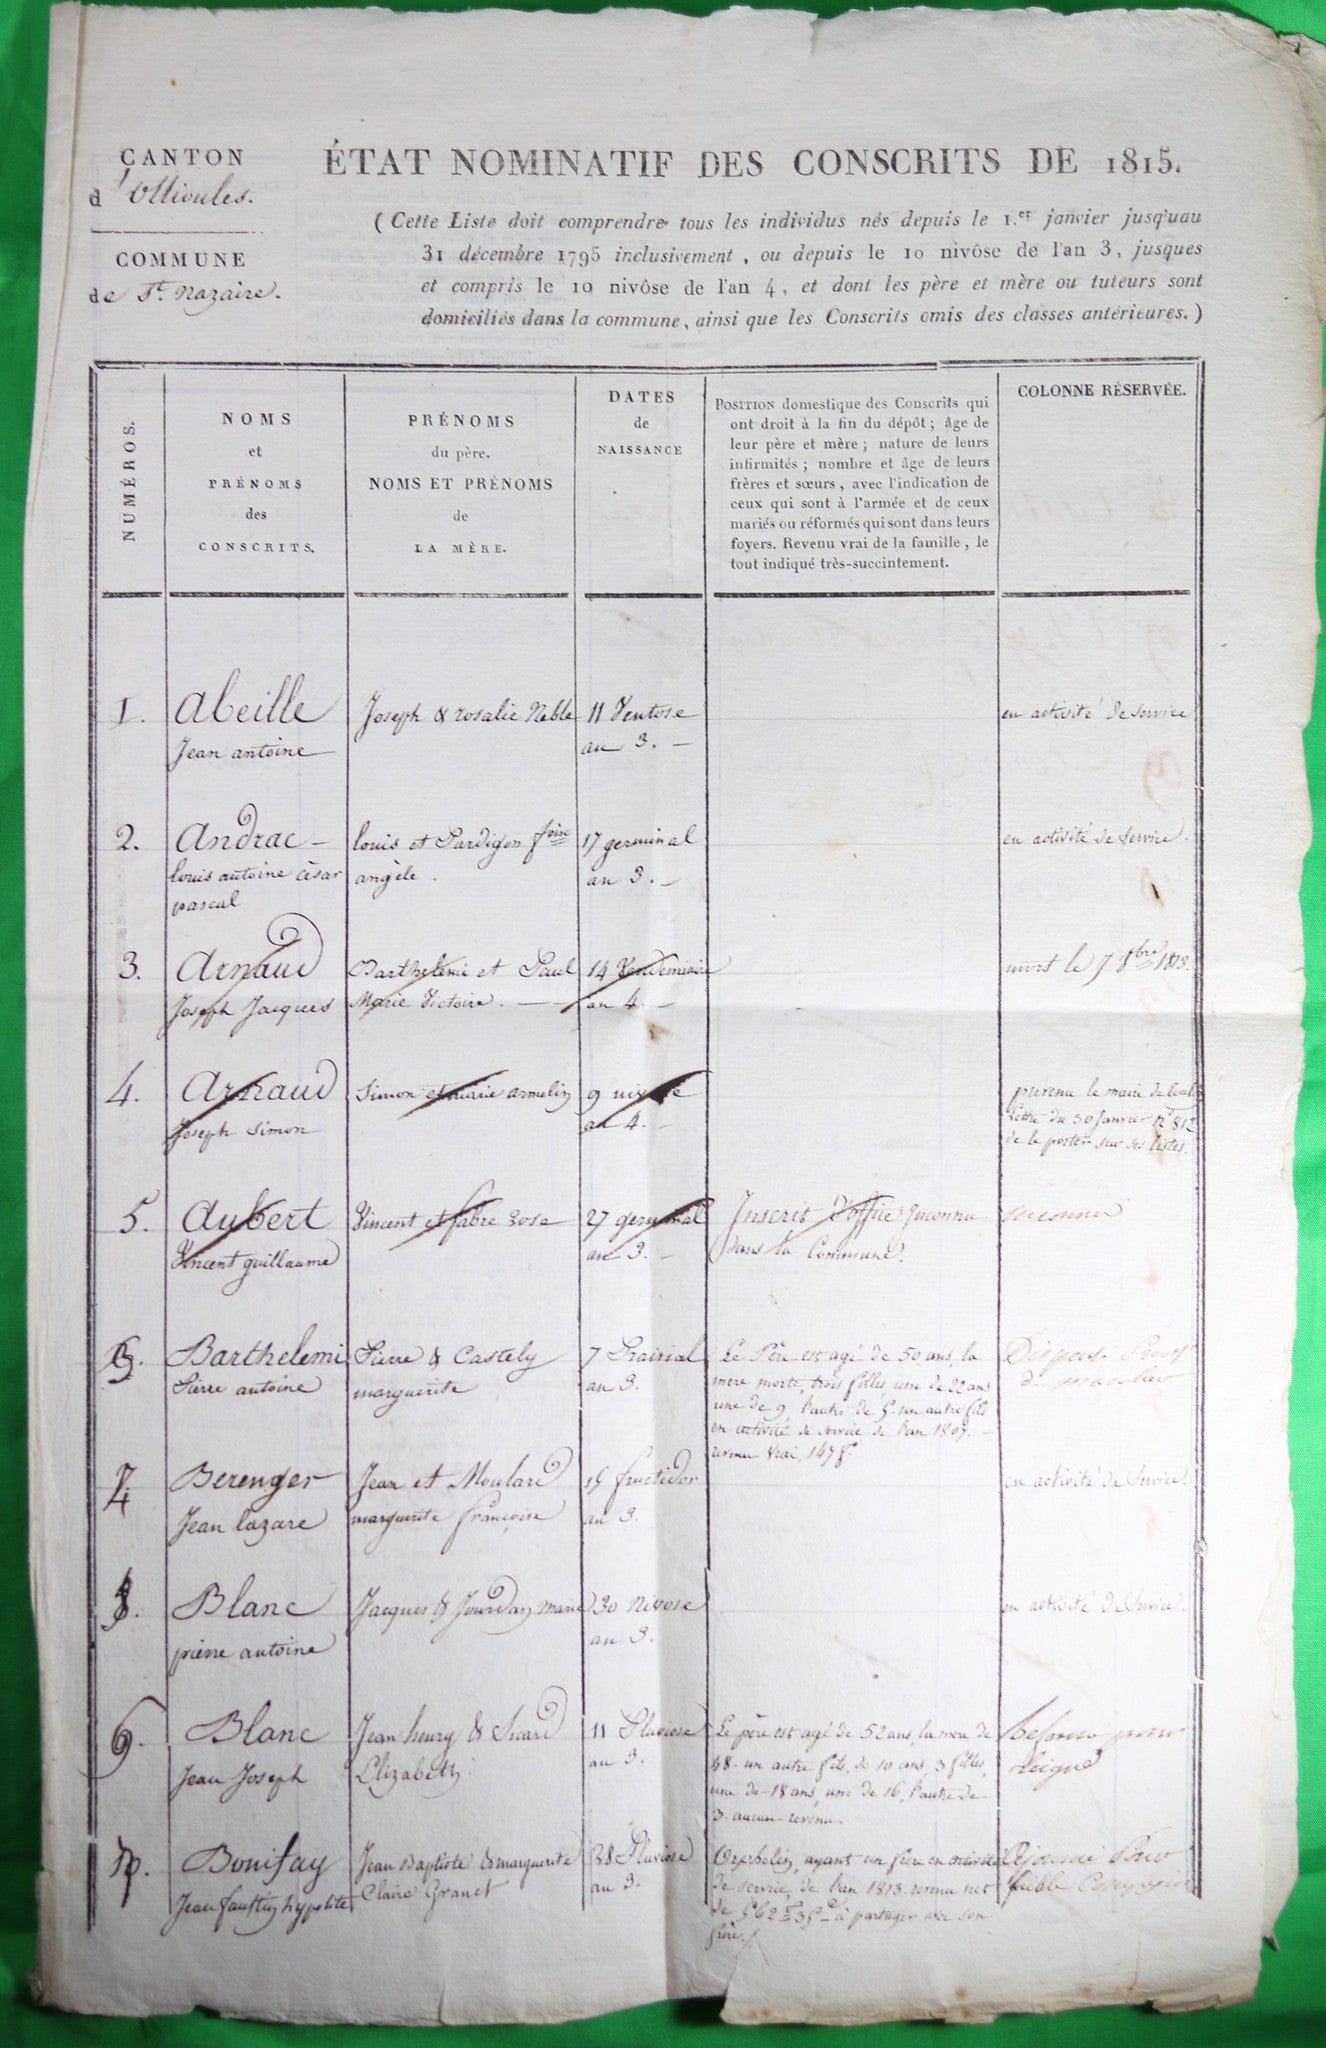 CANTON
d'Ollioules.
COMMUNE
de St. Nazaire.
ÉTAT NOMINATIF DES CONSCRITS DE 1815.
( Cette Liste doit comprendre tous les individus nés depuis le 1.er janvier jusqu'au
31 décembre 1795 inclusivement, ou depuis le 10 nivôse de l'an 3, jusques
et compris le 10 nivôse de l'an 4, et dont les père et mère ou tuteurs sont
domiciliés dans la commune, ainsi que les Conscrits omis des classes antérieures. )
NUMÉROS.
NOMS
et
PRÉNOMS
des
CONSCRITS.
PRÉNOMS
du père.
NOMS ET PRÉNOMS
de
LA MÈRE.
DATES
de
NAISSANCE
POSITION domestique des Conscrits qui
ont droit à la fin du dépôt; âge de
leur père et mère; nature de leurs
infirmités; nombre et âge de leurs
frères et sœurs, avec l'indication de
ceux qui sont à l'armée et de ceux
mariés ou réformés qui sont dans leurs
foyers. Revenu vrai de la famille, le
tout indiqué très-succintement.
COLONNE RÉSERVÉE.
1. Abeille Joseph & rosalie Neble 11 Ventose en activité de Service
Jean antoine an 3.
2. Andrac louis et Pardigon 17 germinal en activité de Service
louis antoine cèsar angèle. an 3.
pascal
3. Arnaud Barthelemie et Paul 14 Vendemiaire mort le 7 8bre 1813
Joseph Jacques Marie Victoire. an 4.
4. Arnaud Simon et marie armelin 9 nivose le maire de
Joseph Simon an 4. Lettre du 30 Janvier n° 812
de le porter sur ses listes.
5. Aubert Vincent et fabre Rose 27 germinal Inscrit d'office Inconnu inconnu
Vincent guillaume an 3. dans la Commune.
6. Barthelemi Pierre & Castely 7 Prairial Le Père est agé de 50 ans, la
Pierre antoine marguerite an 3. mere morte, trois filles, une de 22 ans de marcher
une de 9, l'autre de 5. un autre fils
en activité de service de l'an 1807.
revenu vrai, 147 f.
7 Berenger Jean et Moulard 15 fructidor en activité de Service.
Jean lazare marguerite françoise an 3.
8. Blanc Jacques & Jourdan marie 30 Nivose en activité de Service.
pierre antoine an 3.
9. Blanc Jean henry & Sicard 11 Pluviose Le père est agé de 52 ans, la mere de
Jean Joseph Elizabeth. an 3. 48. un autre fils, de 10 ans, 3 filles,
une de 18 ans, une de 16, l'autre de
3. aucun revenu.
10. Bonifay Jean Baptiste & marguerite 28 Pluviose Orphelin, ayant un frere en activité
Jean faustin hypolite Claire Granet an 3. de service, de l'an 1813. revenu net
de à partager avec son
frère.